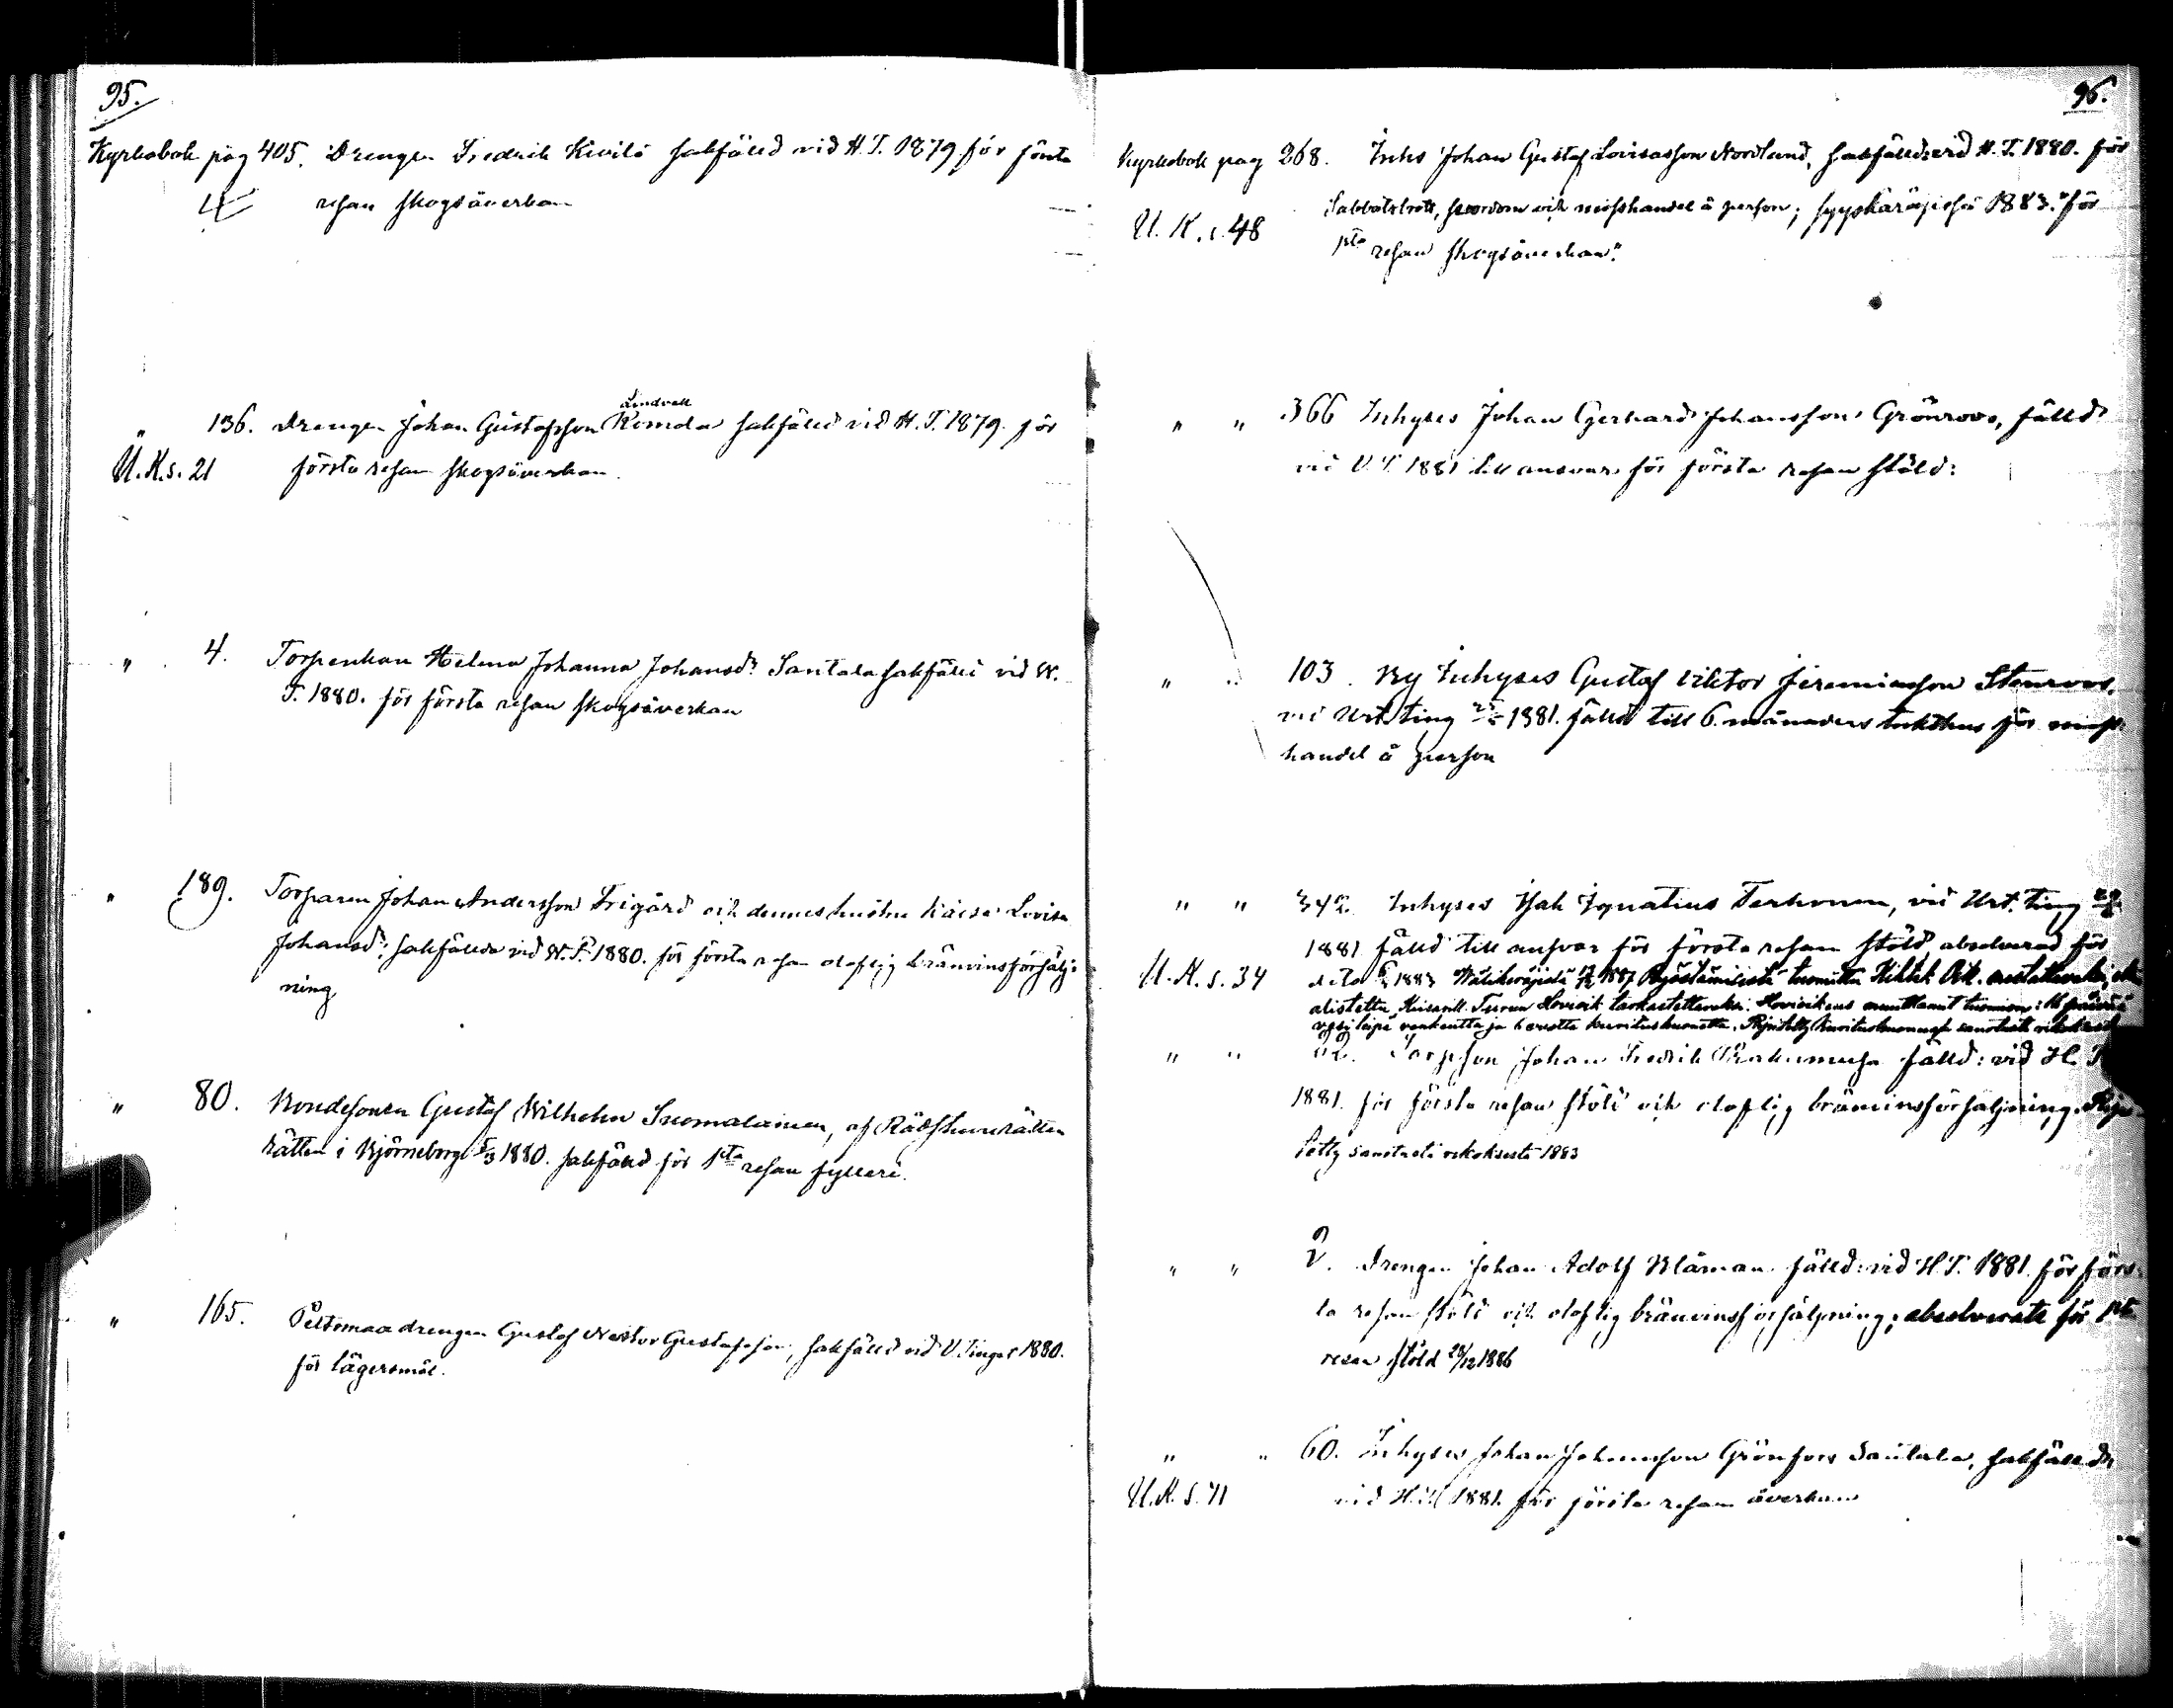 95.
Kyrkobok pag 405. Drengen Fredrik Kivilä sakfälld vid H.T. 1879 för första
resan skogsåverkan
" 136. Drengen Johan Gustafsson Lindvall Komola sakfälld vid H.T. 1879. för
U.K.s. 21 första resan skogsåverkan.
" 4. Torpenkan Helena Johanna Johansdr Santala sakfälld vid W.
T. 1880. för första resan skogsåverkan
" 189. Torparen Johan Andersson Frigård och dennes hustru Kaisa Lovisa
Johansdr: sakfällda vid W.T. 1880. för första resan olaflig bränvinsförsälj-
ning
" 80. Bondesonen Gustaf Wilhelm Suomalainen, af Rådsturätten
rätten i Björneborg 1880. sakfälld för 1sta resan fylleri.
" 165. Peltomaa drengen Gustaf Nestor Gustafsson, sakfälld vid V. Tinget 1880.
för lägersmål.
96.
Kyrkobok pag 268. Inhs Johan Gustaf Lovisasson Nordlund, sakfälld: vid H.T. 1880. för
Sabbatsbrott, svordom och misshandel å person; syyskäräjissä 1883. "för
U.K.s. 48 1sta resan skogsåverkan".
" " 366 Inhyses Johan Gerhard Johansson Grönroos, fälld
vid V.T. 1881 till ansvar för första resan stöld:
" " 103. By Inhyses Gustaf Viktor Jeremiasson Stenroos.
vid Urt. ting 1881. fälld till 6. månaders tukthus för miss-
handel å person
" " 342. Inhyses Isak Ignatius Terhonen, vid Urt. ting
1881 fälld till ansvar för första resan stöld, absolverad för
U.K.s. 34 dito 1883 1887
alistettu, Keisarill. Turun Hovioik. tarkastettavaksi. Hovioikeus muuttanut tuomion: 16 päivää
vesi leipä vankeutta ja vuotta kuritushuonetta.
" " Torpson Johan Fredrik fälld: vid H. T
1881. för första resan stöld och olaflig bränvinsförsäljning. Ripi-
tetty sanotusta rikoksesta 1883
" " 2. Drengen Johan Adolf Blåman fälld: vid H.T. 1881. för förs-
ta resan stöld och olaflig bränvinsförsäljning; absolverats för 1sta
resan stöld 28/12 1886
" " 60. Inhyses Johan Johansson Grönfors Santala, sakfälld
U.K.s. 71 vid H.T. 1881. för första resan åverkan